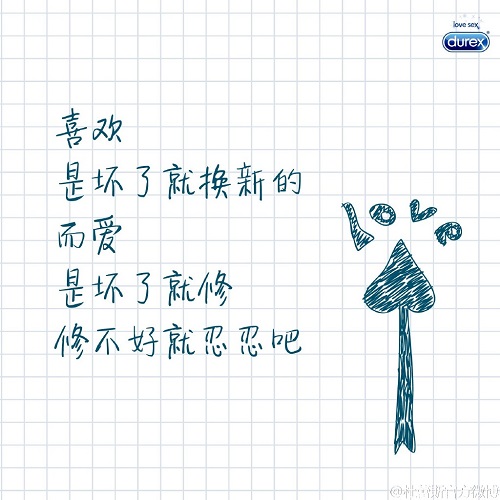 love sex.
durex
喜欢
是坏了就换新的
而爱
是坏了就修
修不好就忍忍吧
Love